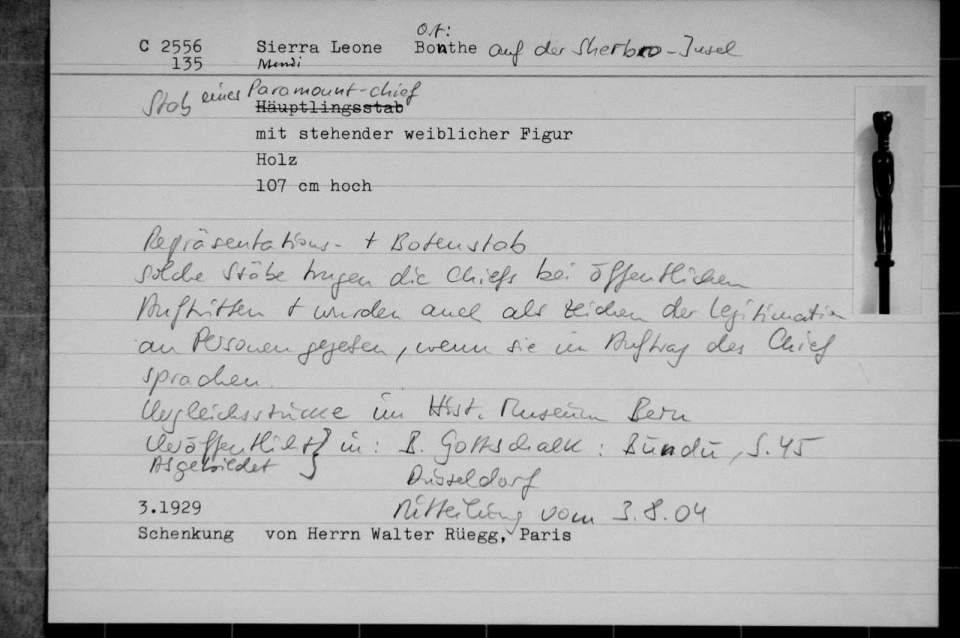 Ort:
C 2556 Sierra Leone Bonthe auf der Sherbro-Insel
135 Mendi
Stab eines Paramount-chief
Häuptlingsstab
mit stehender weiblicher Figur
Holz
107 cm hoch
Repräsentations- + Botenstab
solche Stäbe trugen die Chiefs bei öffentlichen
Auftritten + wurden auch als Zeichen der Legitimation
an Personen gegeben, wenn sie im Auftrag des Chief
sprachen.
Vergleichsstücke im Hist. Museum Bern
Veröffentlicht } in: B. Gottschalk: Bundu, S. 45
Abgebildet } Düsseldorf
3.1929 Mitteilung vom 3.8.04
Schenkung von Herrn Walter Rüegg, Paris